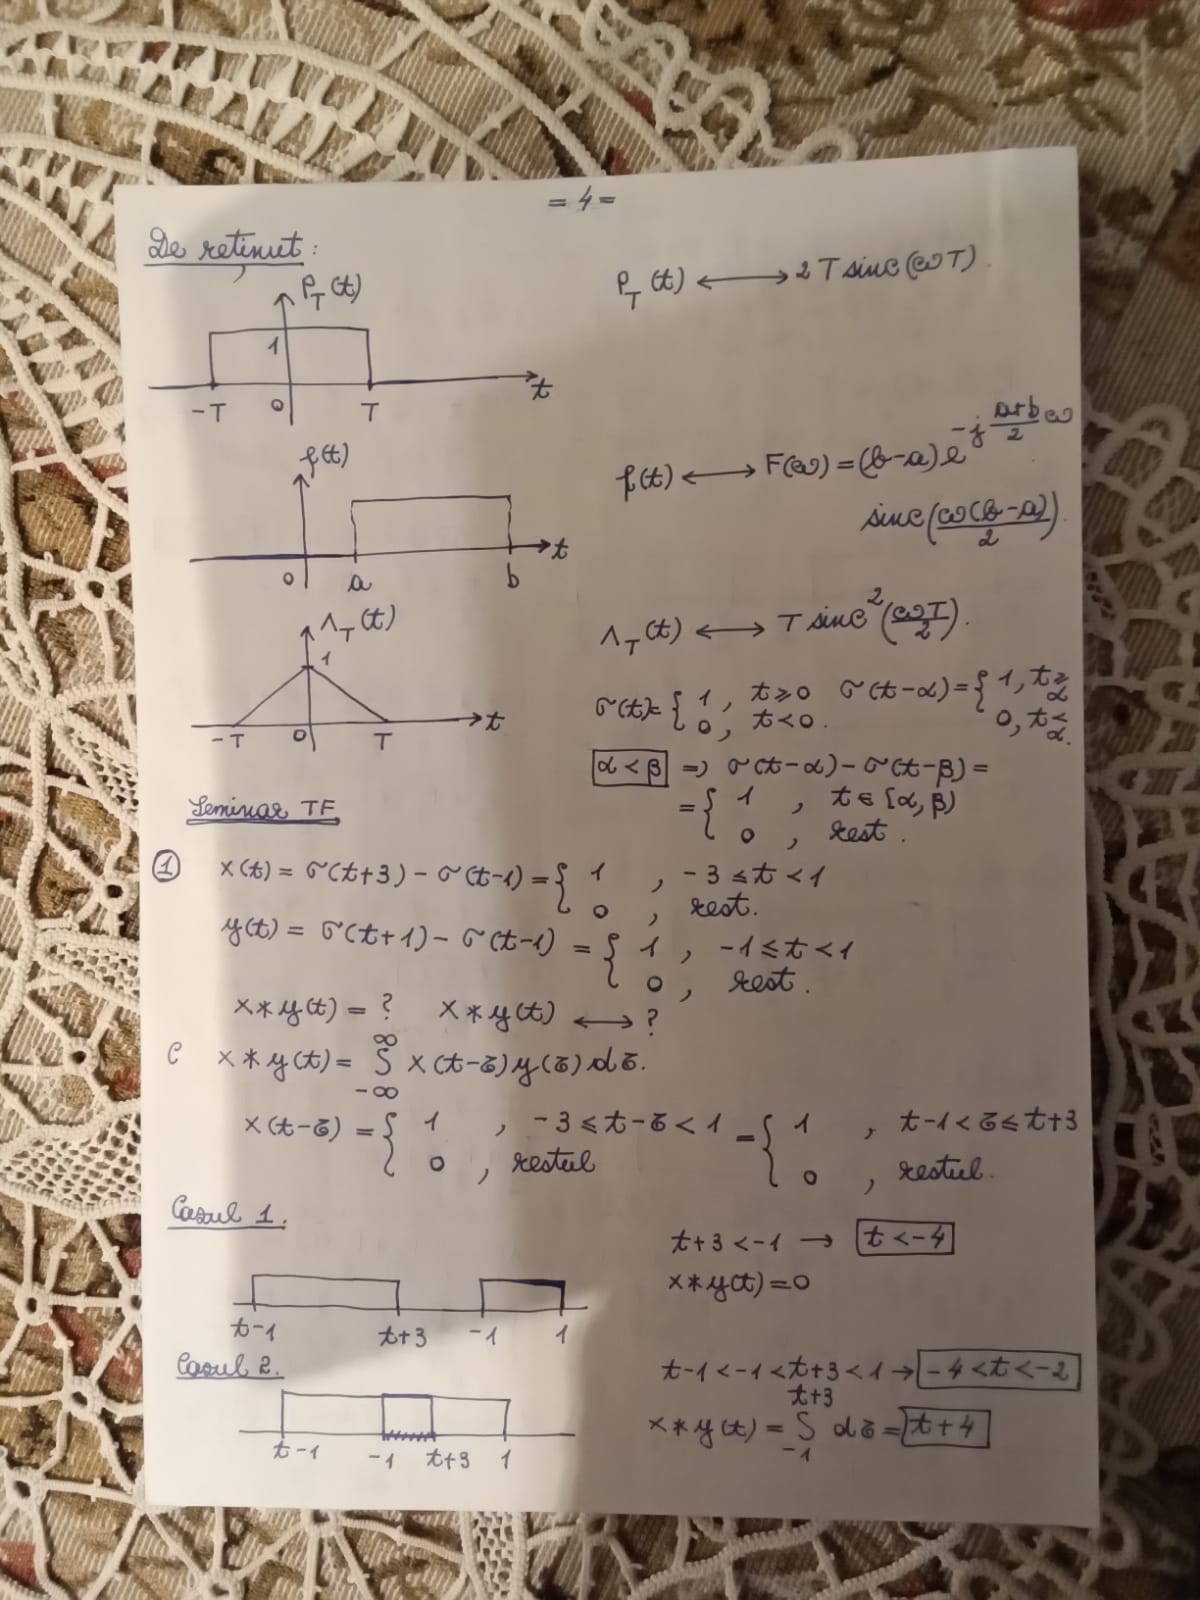 = 4 =
De reținut:
p_T(t)
1
-T 0 T t
p_T(t) ⟷ 2T sinc(ωT).
f(t)
0 a b t
f(t) ⟷ F(ω) = (b-a) e^{-j \frac{a+b}{2} ω}
sinc(\frac{ω(b-a)}{2}).
Λ_T(t)
1
-T 0 T t
Λ_T(t) ⟷ T sinc²(\frac{ωT}{2}).
σ(t) = { 1, t ≥ 0 σ(t-α) = { 1, t ≥ α
0, t < 0. 0, t < α.
α < β => σ(t-α) - σ(t-β) =
= { 1 , t ∈ [α, β)
0 , rest.
Seminar TF
① x(t) = σ(t+3) - σ(t-1) = { 1 , -3 ≤ t < 1
0 , rest.
y(t) = σ(t+1) - σ(t-1) = { 1 , -1 ≤ t < 1
0 , rest.
x*y(t) = ? x*y(t) ⟷ ?
C x*y(t) = ∫_{-∞}^{∞} x(t-τ) y(τ) dτ.
x(t-τ) = { 1 , -3 ≤ t-τ < 1 = { 1 , t-1 < τ ≤ t+3
0 , restul 0 , restul.
Cazul 1.
t+3 < -1 → t < -4
x*y(t) = 0
t-1 t+3 -1 1
Cazul 2.
t-1 < -1 < t+3 < 1 → -4 < t < -2
x*y(t) = ∫_{-1}^{t+3} dτ = t+4
t-1 -1 t+3 1